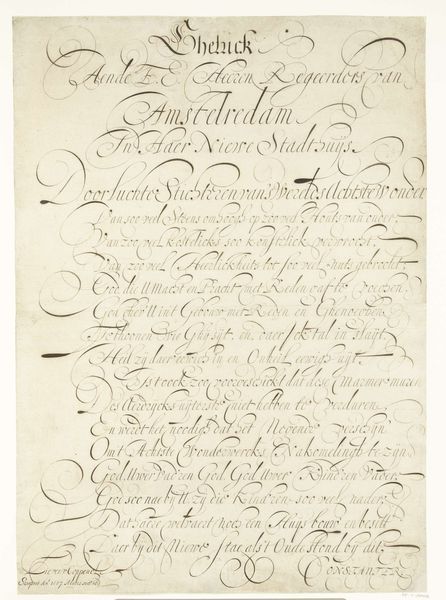 Gheluck
Aende E. E. Heeren Regeerders van
Amstelredam
In Haer Niewe Stadthuijs.
Doorluchte Stichteren van swerelts Achtste wonder
Van soo veel Steens omhoogh op zoo veel Houts van onder,
Van zoo veel kostelicks soo konstelick verwrocht,
Van zoo veel Heerlickheits tot soo veel nuts gebrocht,
God die U Macht en Pracht met Reden gaf te voeghen
God gheef U in't Gebouw met Reden en Ghenoeghen
Te thoonen wie Ghy zijt, en daer ick 't al in sluijt,
Heil zij daer eewich in en Onheil eewich uyt.
Is 't oock zoo voorbeschickt dat dese Marmer muren
Des Aerdrijcks uijterste niet hebben te verduren
En werdt het noodigh dat het Negende verschijn
Om't Achtste Wonderwercks Nakomelingh te zijn,
God, Uwer Vad'ren God, God Uwer Kind'ren Vader,
God soo naebij U, zij die Kind'ren soo veel nader,
Dat haere welvaert noch een Huys bouw en besitt
Daer bij dit Niewe stae als't Oude stond bij dit.
CONSTANTER
Lieven Coppenol